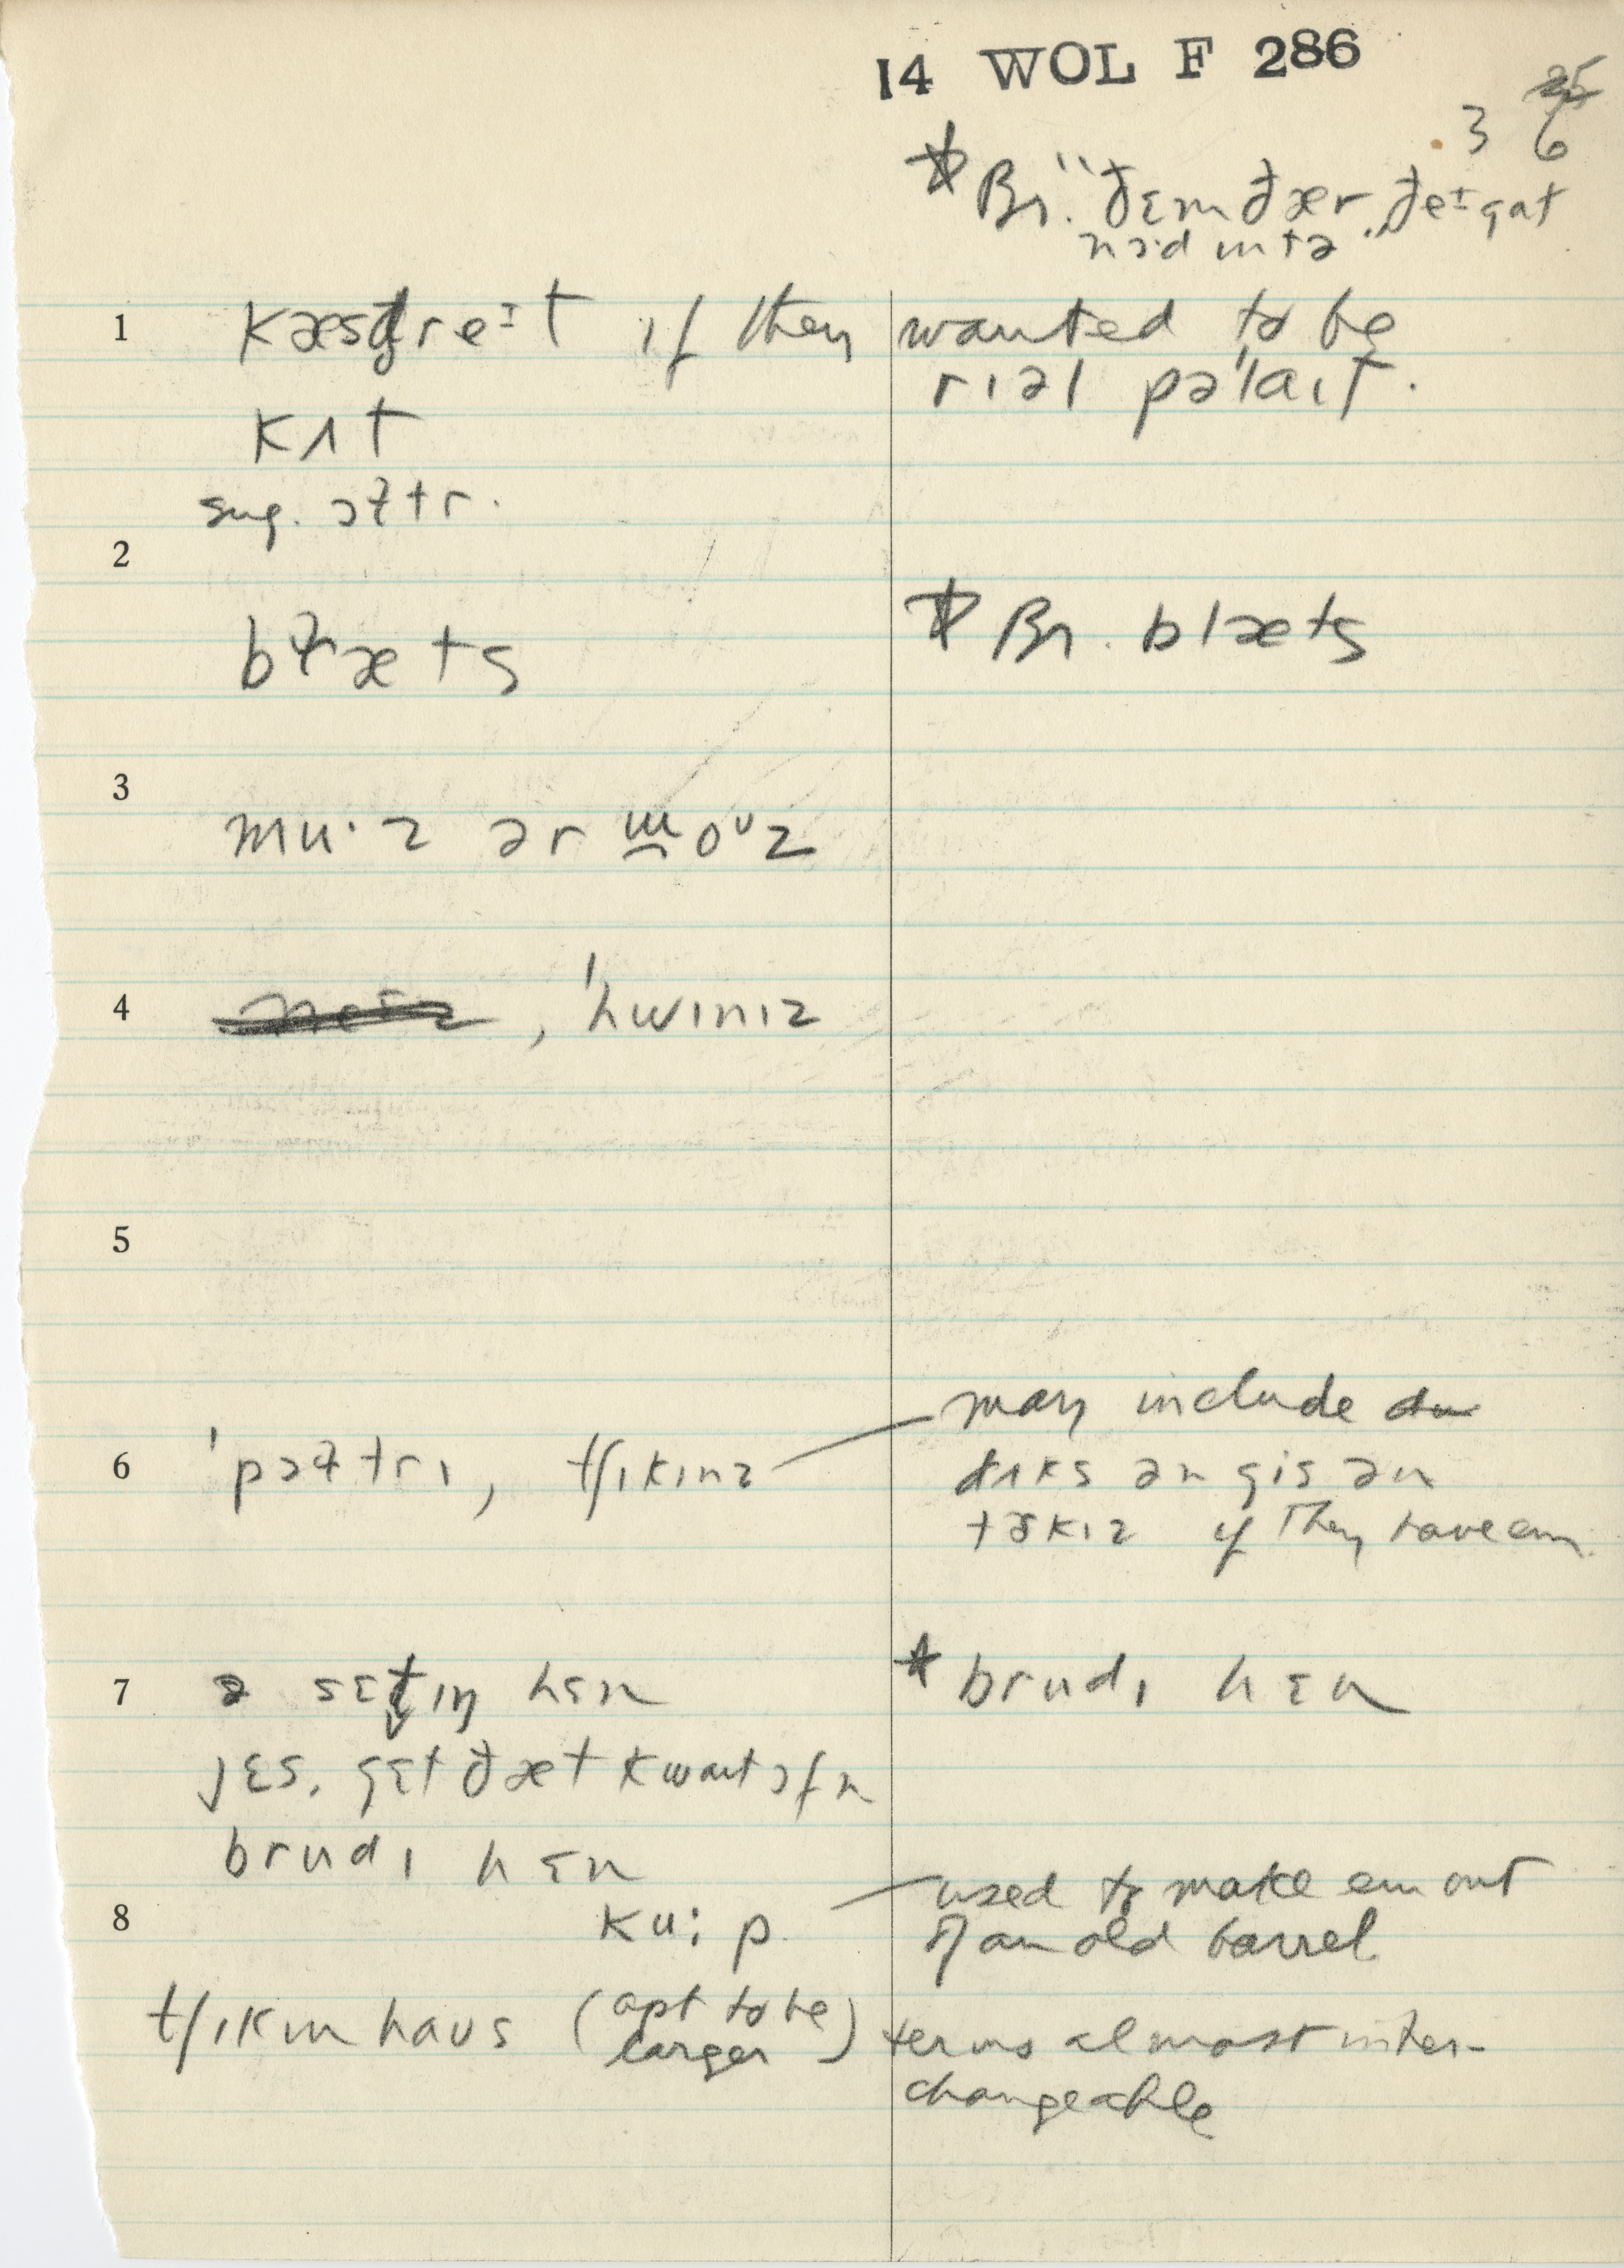 14 WOL F 286
3 6
* Br. "ðɛm ðær, ðeᴵ gat
nɔ·d ɪntə"
1 kæstreᴵt if they wanted to be
rɪəl pə'laɪt.
kʌt
sug. ɔɫtr.
2
bɫæts * Br. blæts
3
mu·z ər m̯oᶷz
4 , 'hwɪnɪz
5
6 'pɔɫtrɪ, tʃɪkɪnz may include
dʌks ən gis ən
tɝkɪz if they have em.
7 ə sɛt̬ɪŋ hɛn * brudɪ hɛn
jɛs. gɛt ðæt kwaɪt ɔfn
brudɪ hɛn
8 ku:p used to make em out
of an old barrel
tʃɪkɪn haʊs (apt to be larger) terms almost inter-
changeable